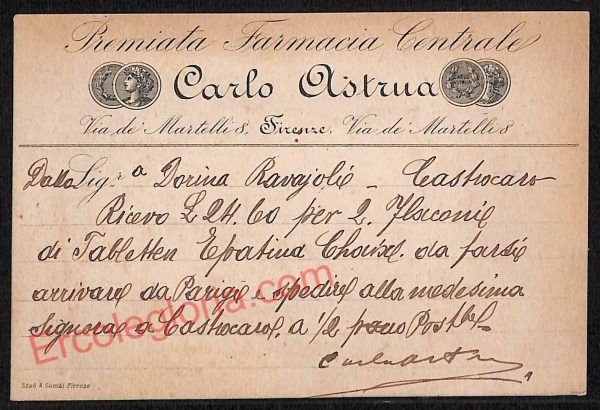 Premiata Farmacia Centrale
Carlo Astrua
Via de' Martelli 8, Firenze, Via de' Martelli 8
Dalla Sig.ra Dorina Ravajoli - Castrocaro
Ricevo £ 24.60 per 2. Flaconi
di Tabletten Epatina Chaix. da farsi
arrivare da Parigi e spedire alla medesima
Signora a Castrocaro, a 1/2 pacco Postle
Carlo Astrua
Stab. A. Gambi-Firenze
Ercolegloria.com